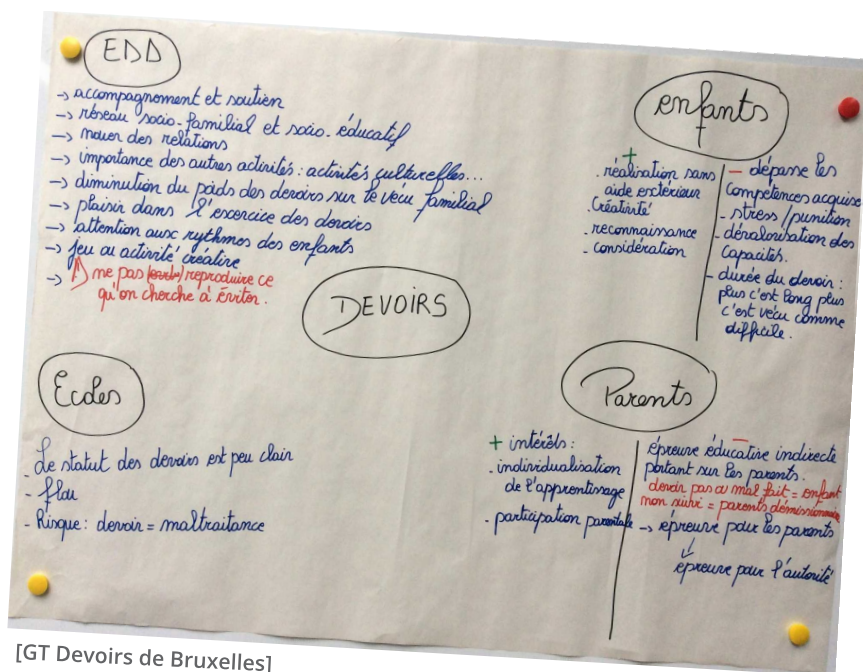 EDD
→ accompagnement et soutien
→ réseau socio-familial et socio-éducatif
→ nouer des relations
→ importance des autres activités : activités culturelles...
→ diminution du poids des devoirs sur le vécu familial
→ plaisir dans l'exercice des devoirs
→ attention aux rythmes des enfants
→ jeu ou activité créative
→ ne pas reproduire ce
qu'on cherche à éviter.
enfants
+
. réalisation sans
aide extérieur
. Créativité
. reconnaissance
. considération
- dépasse les
compétences acquise
- stress / punition
- dévalorisation des
capacités.
- durée du devoir :
plus c'est long plus
c'est vécu comme
difficile.
DEVOIRS
Ecoles
- Le statut des devoirs est peu clair
- flou
- Risque : devoir = maltraitance
Parents
+ intérêts :
. individualisation
de l'apprentissage
. participation parentale
-
épreuve éducative indirecte
portant sur les parents.
devoir pas ou mal fait = enfant
non suivi = parents démissionnaire
→ épreuve pour les parents
↓
épreuve pour l'autorité
[GT Devoirs de Bruxelles]